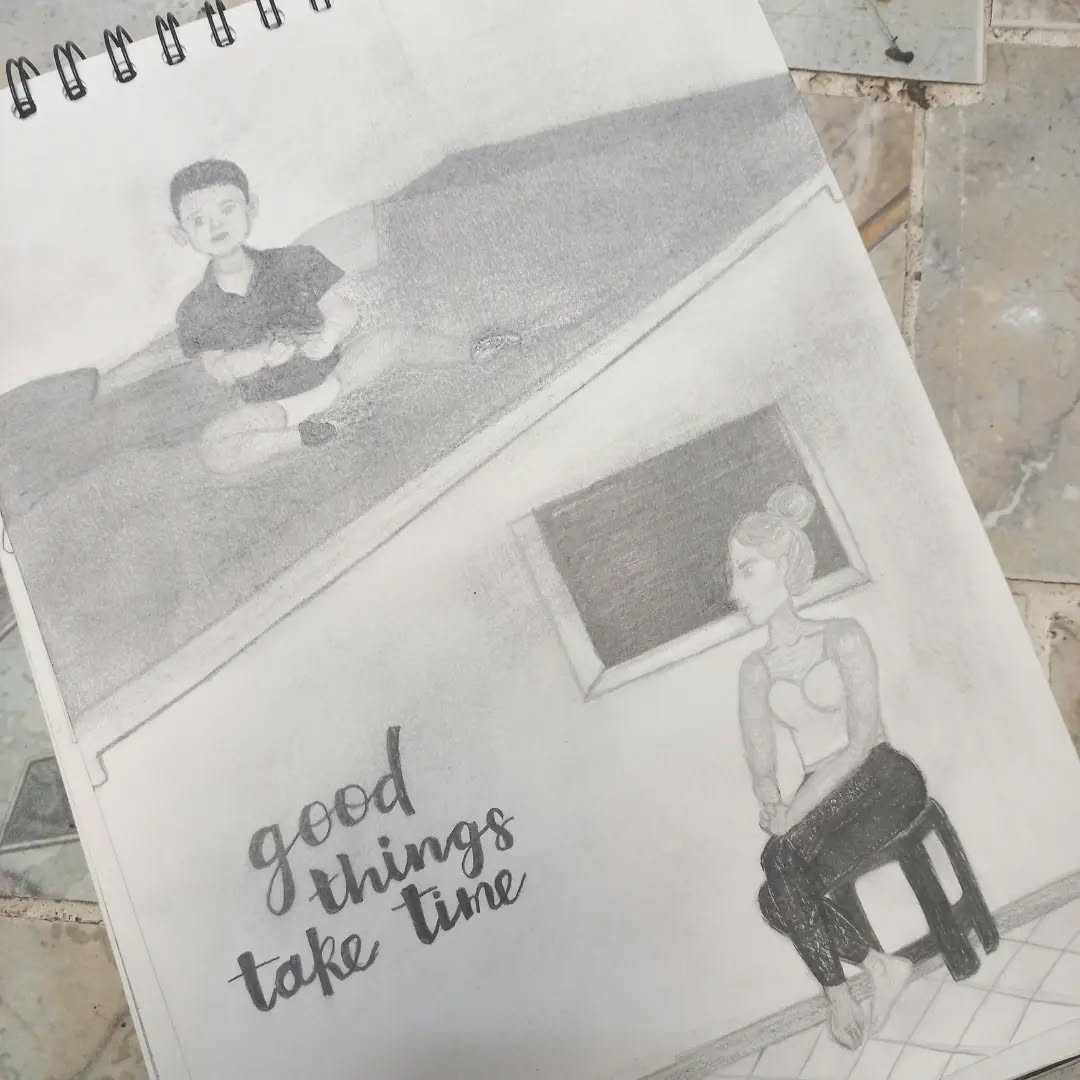 good
things
take time